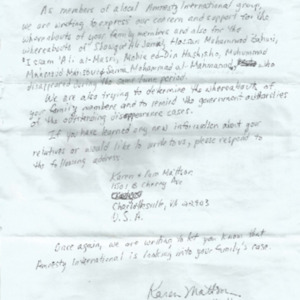 As members of a local Amnesty International group,
we are writing to express our concern and support for the
whereabouts of your family members and also for the
whereabouts of Hassan Mohammad
disappeared during the same period.
We are also trying to determine the whereabouts of
your family members and to remind the government authorities
of the outstanding disappearance cases.
If you have learned any new information about your
relatives or would like to write to us, please respond to
the following address.
Karen & Pen Mattson
1501 E Cherry Ave
Charlottesville, VA
U.S.A
Once again, we are writing to let you know that
Amnesty International is working with your family's case.
Karen Mattson